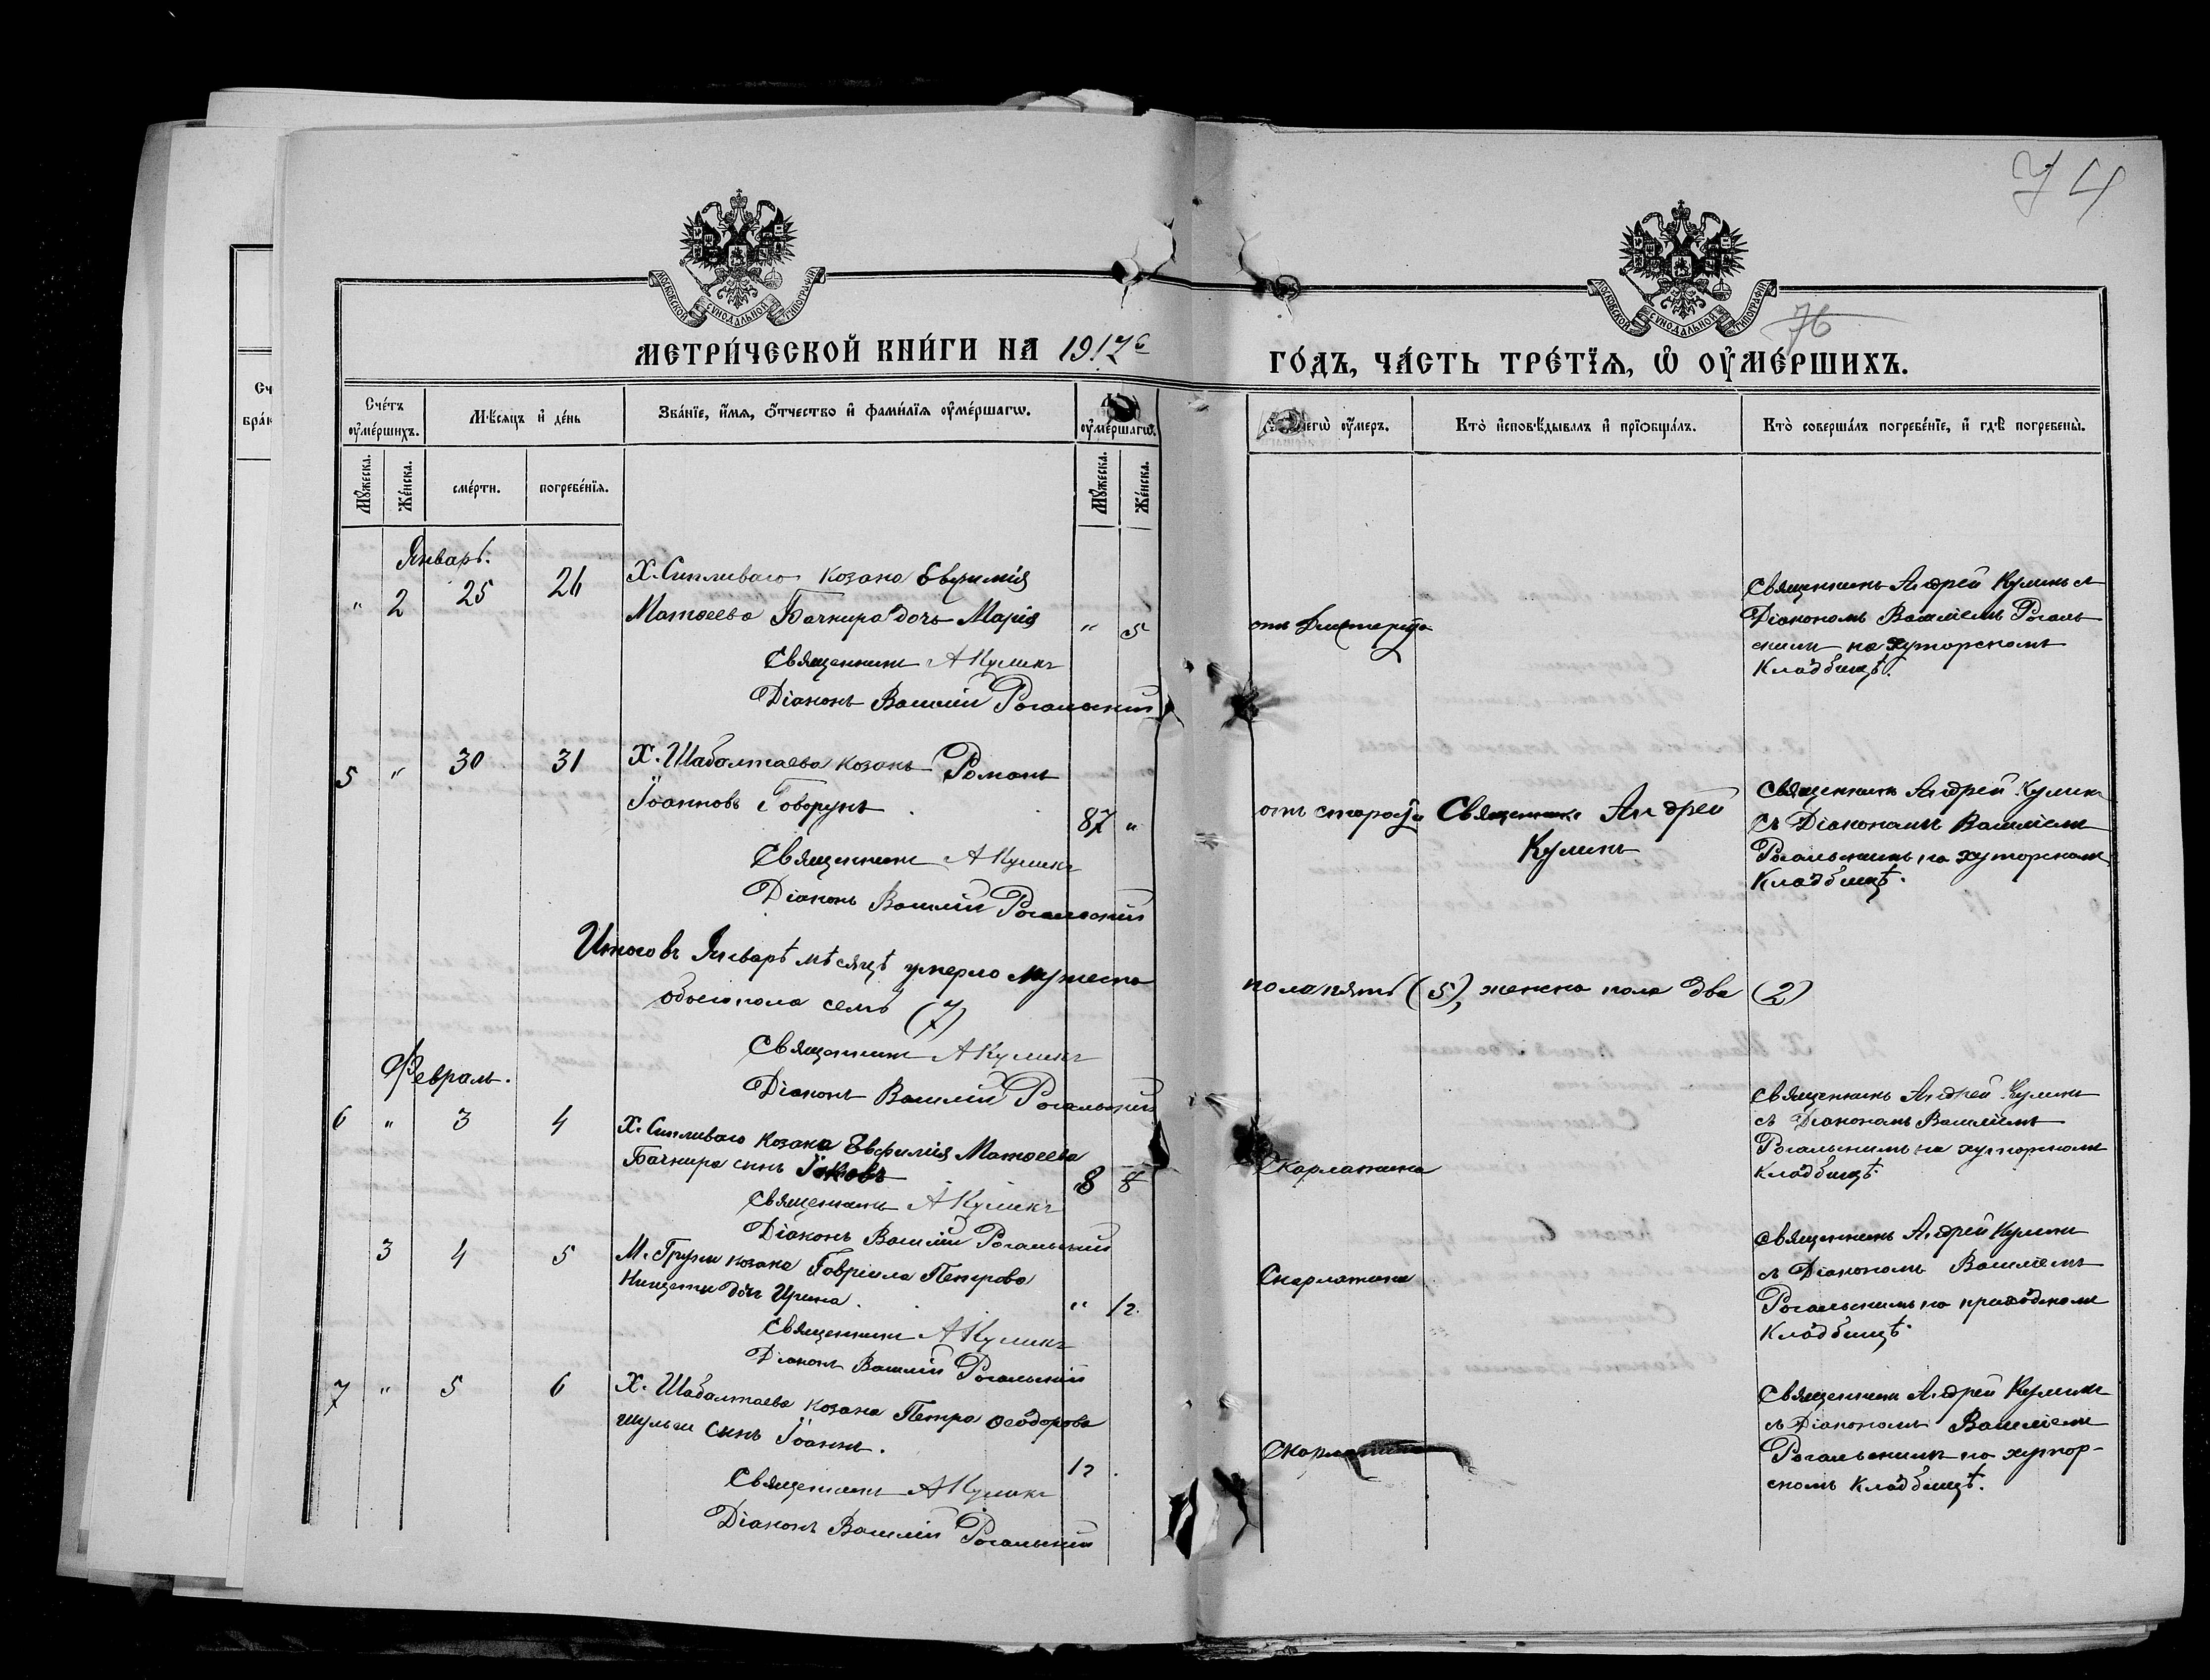 74
76
МОСКОВСКОЙ СѴНОДАЛЬНОЙ ТИПОГРАФІИ
МОСКОВСКОЙ СѴНОДАЛЬНОЙ ТИПОГРАФІИ
МЕТРИ́ЧЕСКОЙ КНИ́ГИ НА 1917й
ГО́ДЪ, ЧА́СТЬ ТРЕ́ТЇѦ, Ѡ҆ ОУ҆МЕ́РШИХЪ.
Сче́тъ оу҆ме́ршихъ.
Мѣ́сѧцъ и҆ де́нь
Зва́нїе, и҆́мѧ, ѻ҆́тчество и҆ фами́лїѧ оу҆ме́ршагѡ.
оу҆ме́ршагѡ.
чегѡ̀ оу҆́меръ.
Кто̀ и҆сповѣ́дывалъ и҆ прїѡбща́лъ.
Кто̀ соверша́лъ погребе́нїе, и҆ гдѣ̀ погребены̀.
Мꙋ́жеска.
Же́нска.
сме́рти.
погребе́нїѧ.
Мꙋ́жеска.
Же́нска.
Январь.
" 2 25 26 Х. Сипливаго козака Евфимія
Матѳеева Бачкира дочь Марія " 5
Священникъ А Куликъ
Діаконъ Василій Рогальский
от Дифтерита
Священникъ Андрей Куликъ съ
Діакономъ Василіемъ Рогаль
скимъ на хуторскомъ
Кладбищѣ.
5 " 30 31 Х. Шабалтаева козакъ Романъ
Іоанновъ Говорунъ 87 "
Священникъ А Куликъ
Діаконъ Василій Рогальский
отъ старости Священникъ Андрей
Куликъ
Священникъ Андрей Куликъ
съ Діакономъ Василіемъ
Рогальскимъ на хуторскомъ
Кладбищѣ.
Итого въ Январѣ мѣсяцѣ умерло мужеска
пола пять (5), женска пола два (2)
обоего пола семь (7)
Священникъ А Куликъ
Діаконъ Василій Рогальский
Февраль.
6 " 3 4 Х. Сипливаго козака Евфимія Матѳеева
Бачкира сынъ Іаковъ 8
Священникъ А Куликъ
Діаконъ Василій Рогальский
Скарлатина
Священникъ Андрей Куликъ
съ Діакономъ Василіемъ
Рогальскимъ на хуторскомъ
Кладбищѣ.
3 4 5 М. Груни козака Гавріила Петрова
Нищеты дочь Ирина. " 12.
Священникъ А Куликъ
Діаконъ Василій Рогальский
Скарлатина
Священникъ Андрей Куликъ
съ Діакономъ Василіемъ
Рогальскимъ на приходскомъ
Кладбищѣ.
7 " 5 6 Х. Шабалтаева козака Петра Ѳеодорова
Шульги сынъ Іоаннъ. 12
Священникъ А Куликъ
Діаконъ Василій Рогальский
Скарлатина
Священникъ Андрей Куликъ
съ Діакономъ Василіемъ
Рогальскимъ на хутор-
скомъ Кладбищѣ.